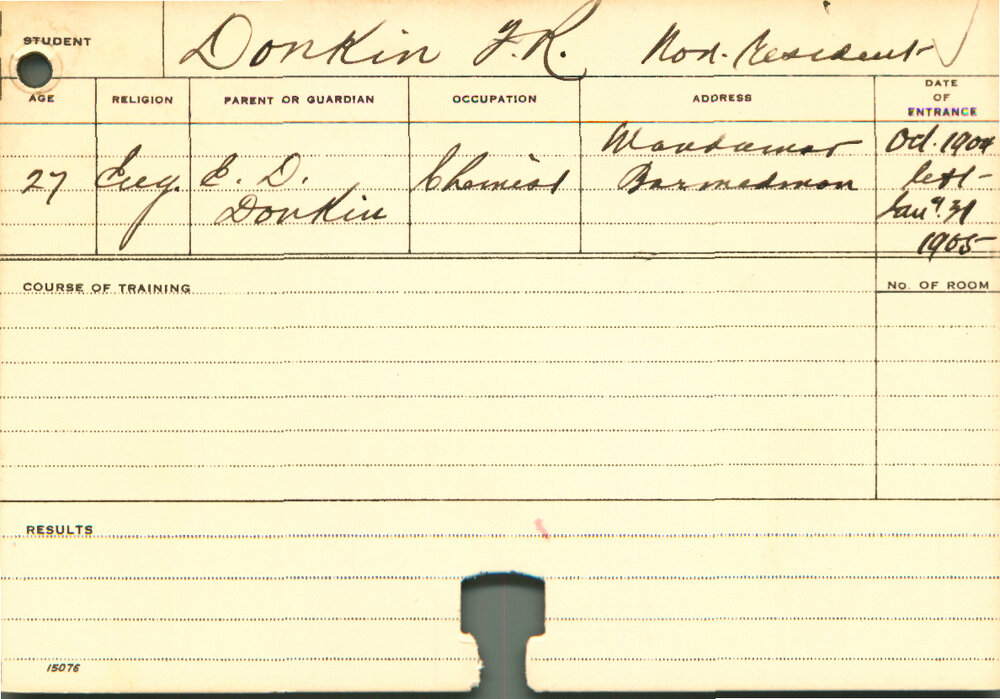 STUDENT Donkin F. R. Non. Resident
AGE RELIGION PARENT OR GUARDIAN OCCUPATION ADDRESS DATE OF ENTRANCE
27 Eng. E. D. Donkin Chemist Barmedman Oct. 1904
left
Jany. 31
1905
COURSE OF TRAINING No. OF ROOM
RESULTS
15076